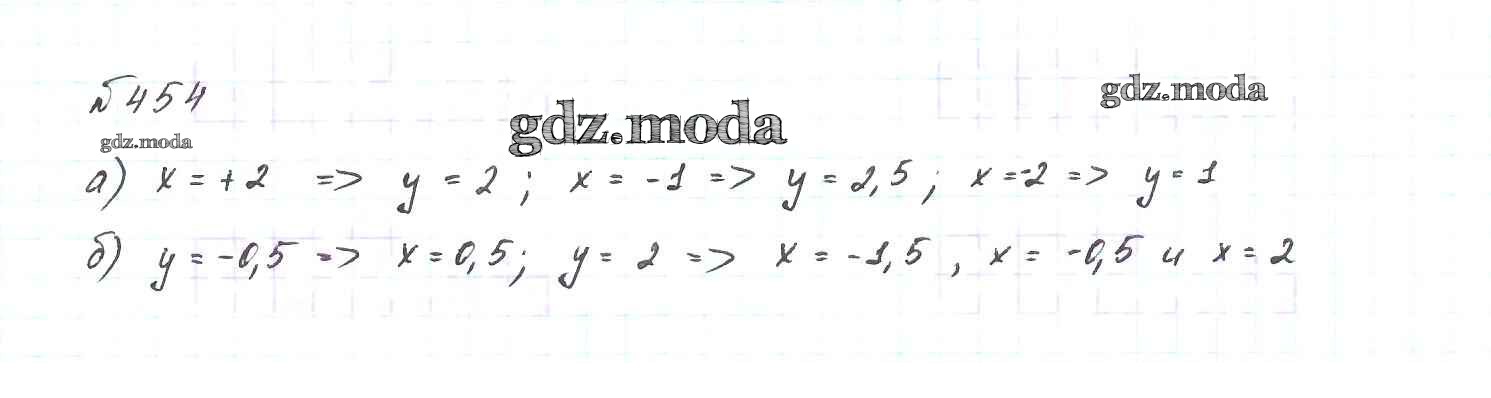 №454
gdz.moda
gdz.moda
gdz.moda
а) x = +2 => y = 2 ; x = -1 => y = 2,5 ; x = -2 => y = 1
б) y = -0,5 => x = 0,5; y = 2 => x = -1,5 , x = -0,5 и x = 2